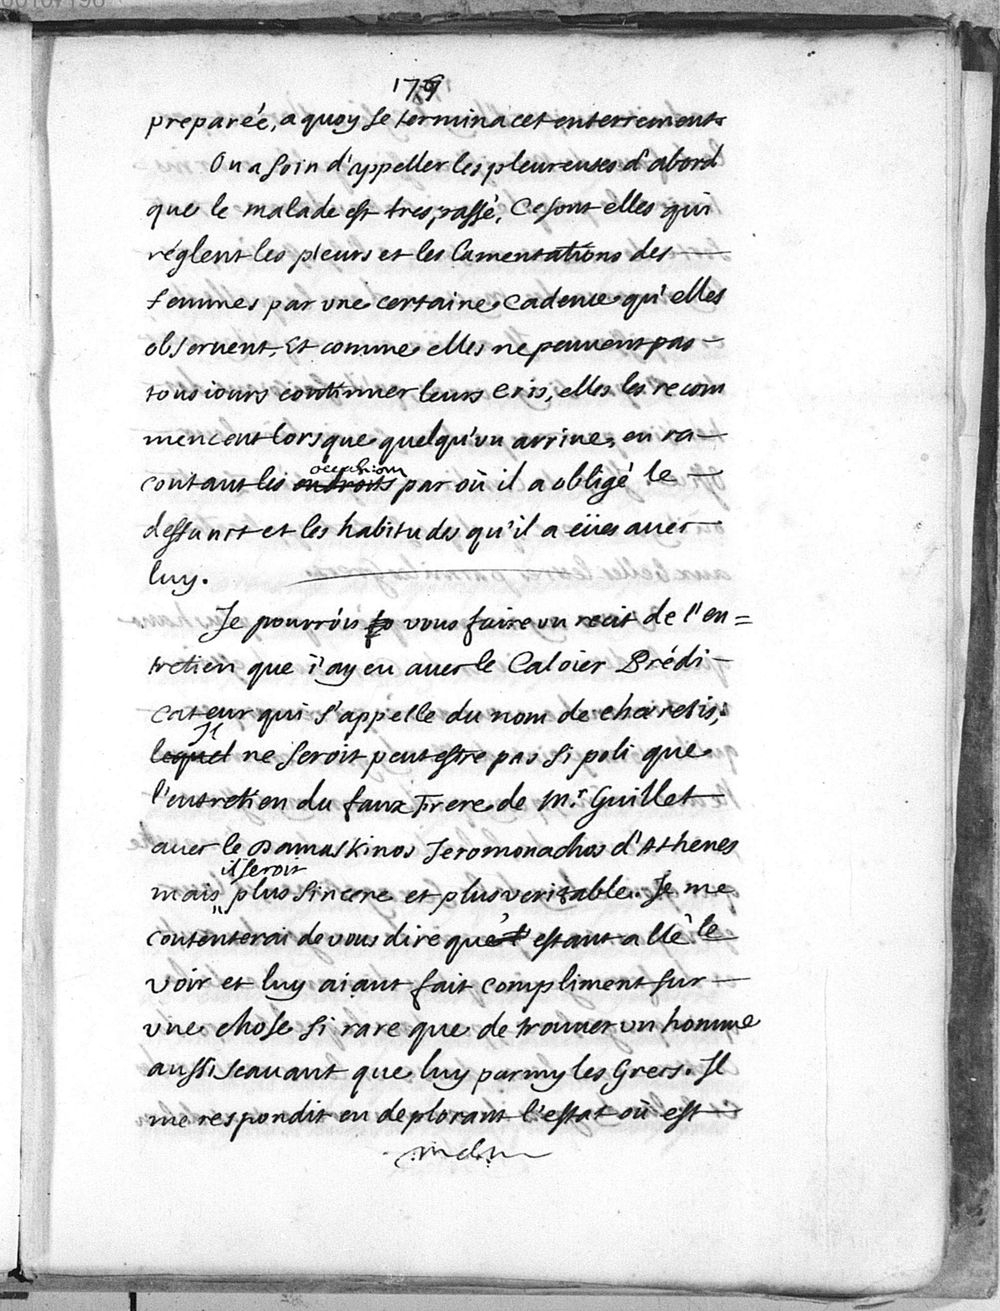 179
preparée, a quoy se termina cet enterrement
On a soin d'appeller les pleureuses d'abord
que le malade est trespassé, Ce sont elles qui
réglent les pleurs et les lamentations des
femmes par vne certaine Cadence qu'elles
obseruent, Et comme elles ne peuuent pas
tousiours continuer leurs cris, elles les recom
mencent lorsque quelqu'vn arriue, en ra-
contant les endroits occasions par où il a obligé le
deffunct et les habitudes qu'il a eües auec
luy.
Je pourrois vous faire vn recit de l'en=
tretien que i'ay eu auec le Caloier Prédi-
cateur qui s'appelle du nom de charetis,
lequel Il ne seroit peutestre pas si poli que
l'entretien du faux Frere de Mr Guillet
auec le Damaskinos Jeromonachos d'Athenes
mais il seroit plus sincere et plus veritable. Je me
contenterai de vous dire que estant allé le
voir et luy aiant fait compliment sur
vne chose si rare que de trouuer vn homme
aussi scauant que luy parmy les Grecs. Il
me respondit en deplorant l'estat où est